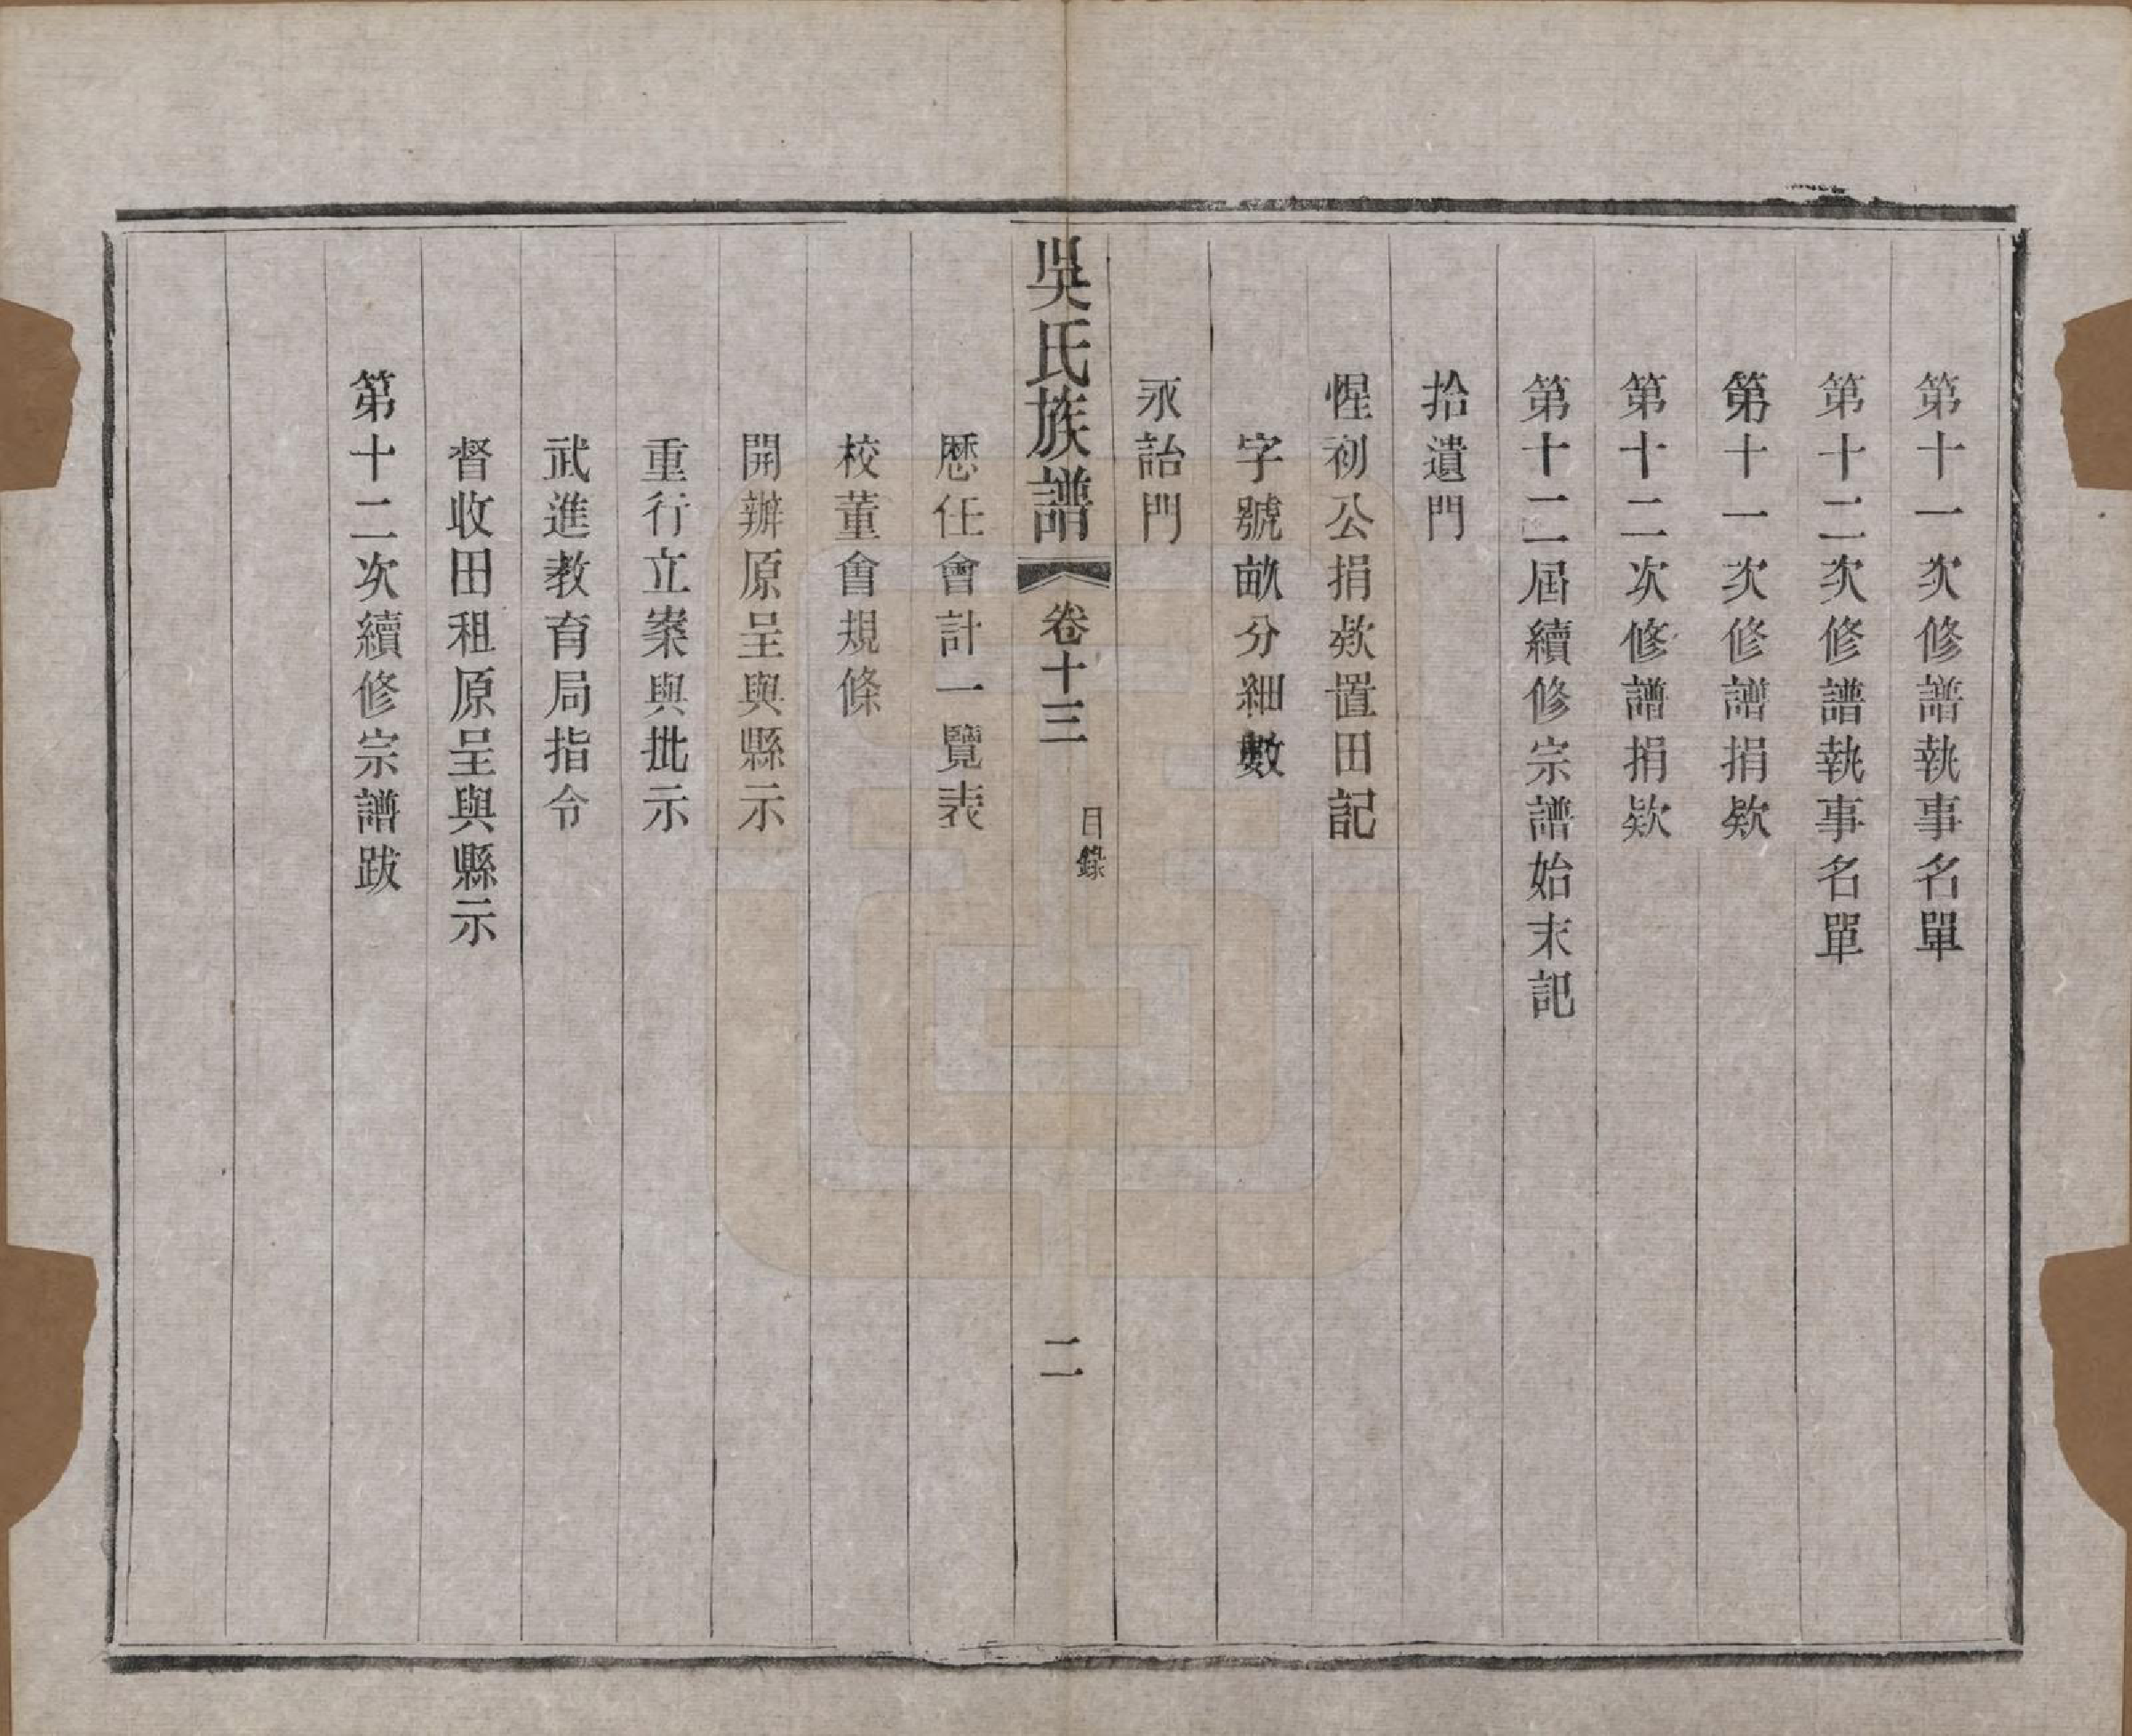 第十一次修譜執事名單
第十二次修譜執事名單
第十一次修譜捐欵
第十二次修譜捐欵
第十二屆續修宗譜始末記
拾遺門
惺初公捐欵置田記
字號畝分細數
永詒門
吳氏族譜 卷十三 目錄 二
歷任會計一覽表
校董會規條
開辦原呈與縣示
重行立案與批示
武進教育局指令
督收田租原呈與縣示
第十二次續修宗譜跋